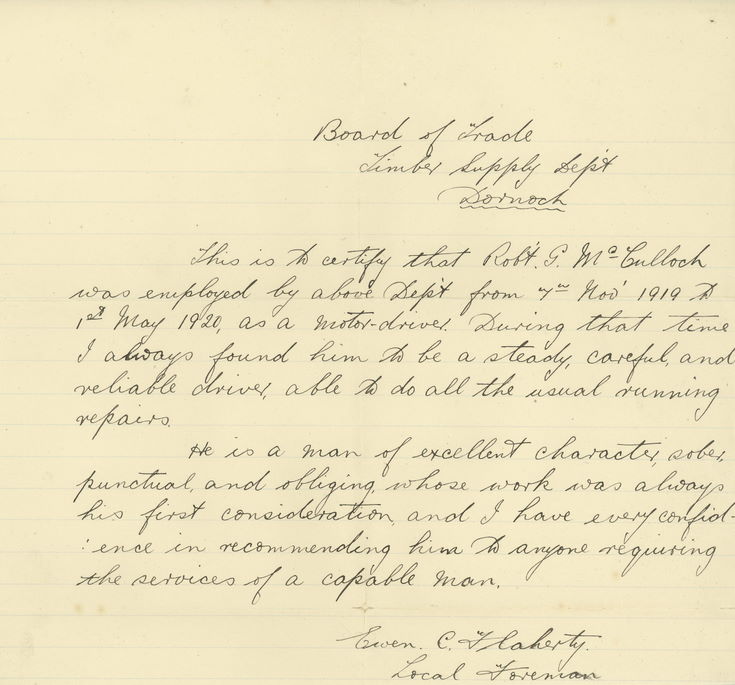 Board of Trade
Timber Supply Dep't
Dornoch
This is to certify that Rob't. G. McCulloch
was employed by above Dep't from 7th Nov' 1919 to
1st May 1920, as a motor-driver. During that time
I always found him to be a steady, careful, and
reliable driver, able to do all the usual running
repairs.
He is a man of excellent character, sober,
punctual, and obliging, whose work was always
his first consideration, and I have every confid-
:ence in recommending him to anyone requiring
the services of a capable man.
Ewen. C. Flaherty.
Local Foreman